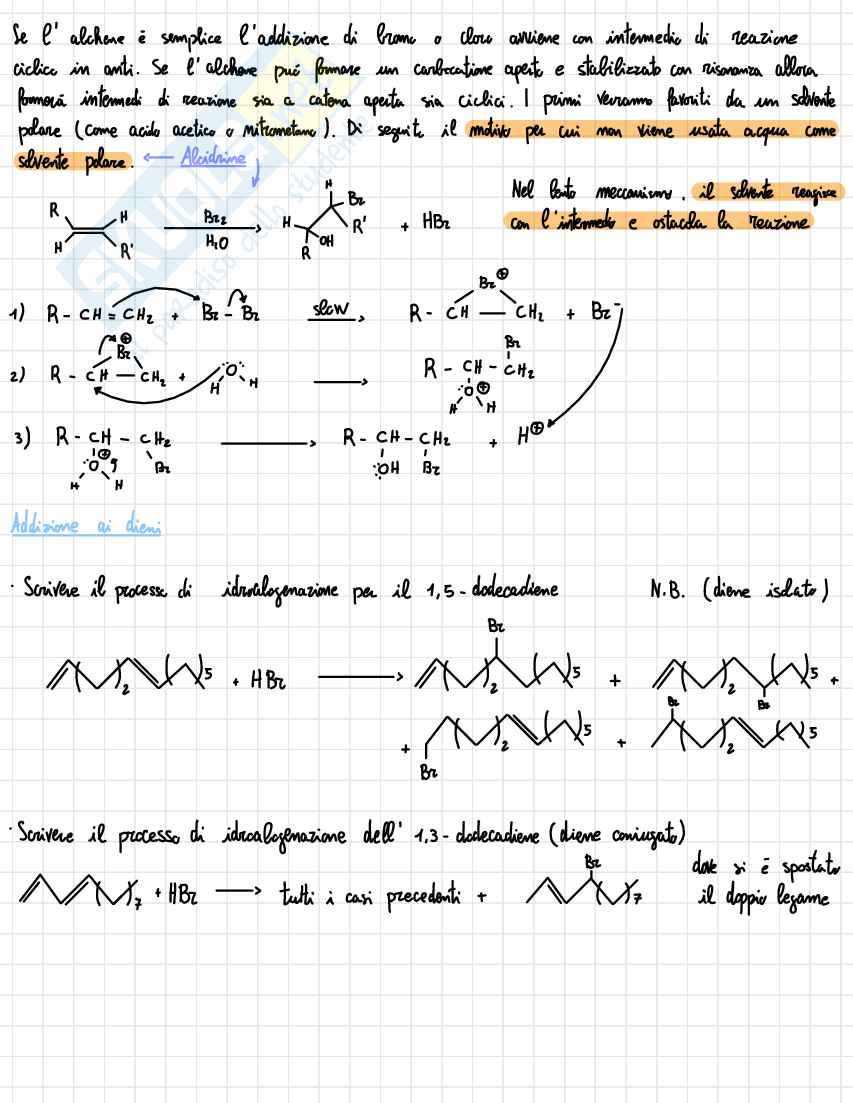 Se l' alchene é semplice l'addizione di bromo o cloro avviene con intermedio di reazione
ciclico in anti. Se l'alchene puó formare un carbocatione aperto e stabilizzato con risonanza allora
formerá intermedi di reazione sia a catena aperta sia ciclici. I primi verranno favoriti da un solvente
polare (come acido acetico o nitrometano). Di seguito il motivo per cui non viene usata acqua come
solvente polare. ← Alcidrine
Nel lento meccanismo, il solvente reagisce
con l'intermedo e ostacola la reazione
R H H R' Br2 H2O → H Br H R' OH R + HBr
1) R - CH = CH2 + Br - Br slow → R - CH - CH2 Br ⊕ + Br-
2) R - CH - CH2 Br ⊕ + :O: H H → R - CH - CH2 Br :O ⊕ H H
3) R - CH - CH2 :O ⊕ H H Br → R - CH - CH2 :OH Br + H⊕
Addizione ai dieni
· Scrivere il processo di idroalogenazione per il 1,5 - dodecadiene N.B. (diene isolato)
( )2 ( )5 + HBr → Br ( )2 ( )5 + ( )2 Br ( )5 +
+ Br ( )2 ( )5 + Br ( )2 ( )5
· Scrivere il processo di idroalogenazione dell' 1,3 - dodecadiene (diene coniugato)
( )7 + HBr → tutti i casi precedenti + Br ( )7 dove si é spostato
il doppio legame
SKUOLA.net
il paradiso dello studente